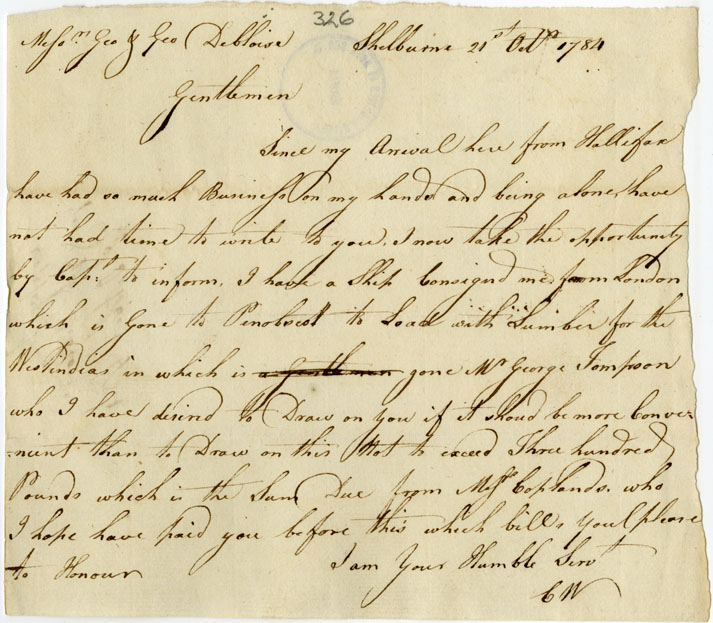 326
Messrs Geo & Geo Debloise Shelburne 21st Octr 1784
Gentlemen
Since my Arrival here from Hallifax
have had so much Business on my hands and being alone, have
not had time to write to you. I now take the opportunity
by Capt. to inform, I have a Ship Consignd me from London
which is gone to Penobscott to Load with Lumber for the
Westindias in which is a Gentleman gone Mr George Tompson
who I have desird to Draw on you if it shoud be more Conve-
-nient than to Draw on this Not to exceed Three hundred
Pounds which is the Sum Due from Messrs Coplands. who
I hope have paid you before this which bills youl please
to Honour I am Your Humble Servt
CW